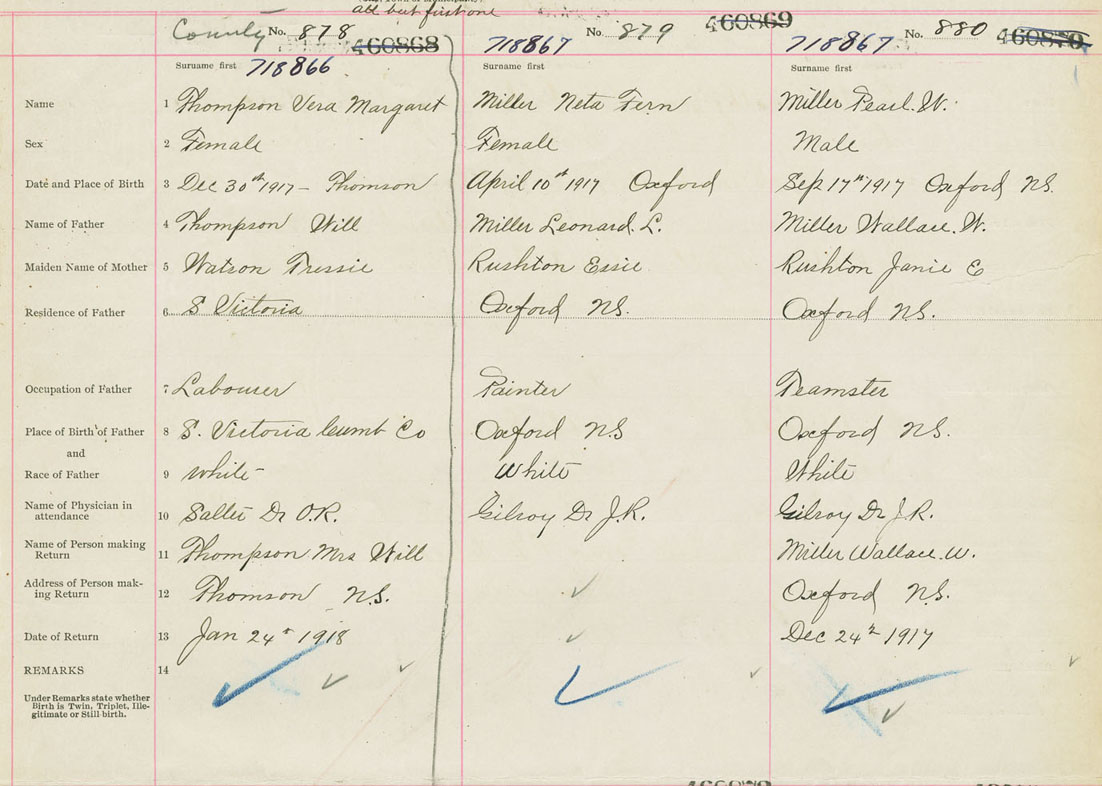 all but first one
County No. 878 460868 718867 No. 879 460869 718867 No. 880 460870
Surname first 718866 Surname first Surname first
Name 1 Thompson Vera Margaret Miller Neta Fern Miller Pearl. W.
Sex 2 Female Female Male
Date and Place of Birth 3 Dec 30th 1917 - Thomson April 10th 1917 Oxford Sep 17th 1917 Oxford NS.
Name of Father 4 Thompson Will Miller Leonard. L. Miller Wallace. W.
Maiden Name of Mother 5 Watson Tressie Rushton Essie Rushton Janie E
Residence of Father 6 S Victoria Oxford NS. Oxford NS.
Occupation of Father 7 Labourer Painter Teamster
Place of Birth of Father 8 S. Victoria Cumb Co Oxford NS Oxford NS.
and
Race of Father 9 White White White
Name of Physician in
attendance 10 Dr O.R. Gilroy Dr J.R. Gilroy Dr J.R.
Name of Person making
Return 11 Thompson Mrs Will Miller Wallace. W.
Address of Person mak-
ing Return 12 Thomson N.S. Oxford NS.
Date of Return 13 Jan 24th 1918 Dec 24th 1917
REMARKS 14
Under Remarks state whether
Birth is Twin, Triplet, Ille-
gitimate or Still-birth.